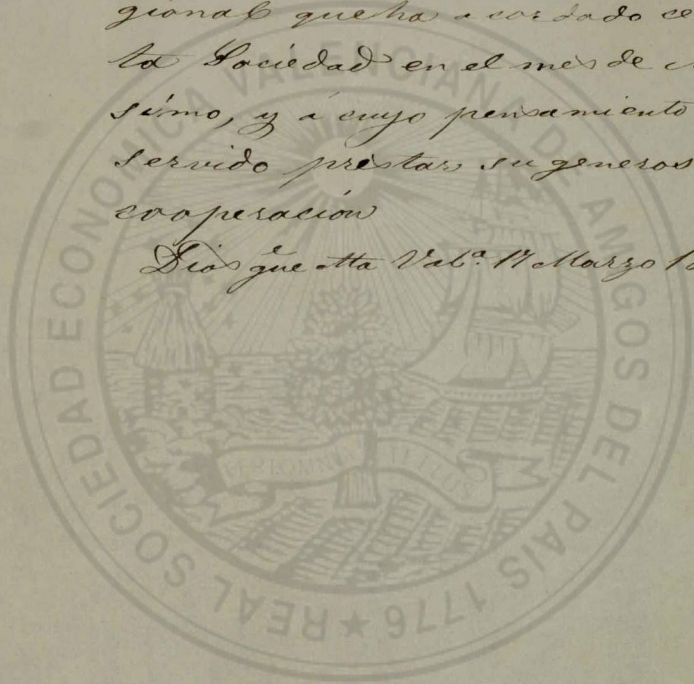 gional que ha acordado ce
ta Sociedad en el mes de
simo, y á cuyo pensamiento
servido prestar su generos
cooperación
Dios gue Val.ª 17 Marzo 1
REAL SOCIEDAD ECONOMICA VALENCIANA DE AMIGOS DEL PAIS 1776
FERT OMNIA TELLUS